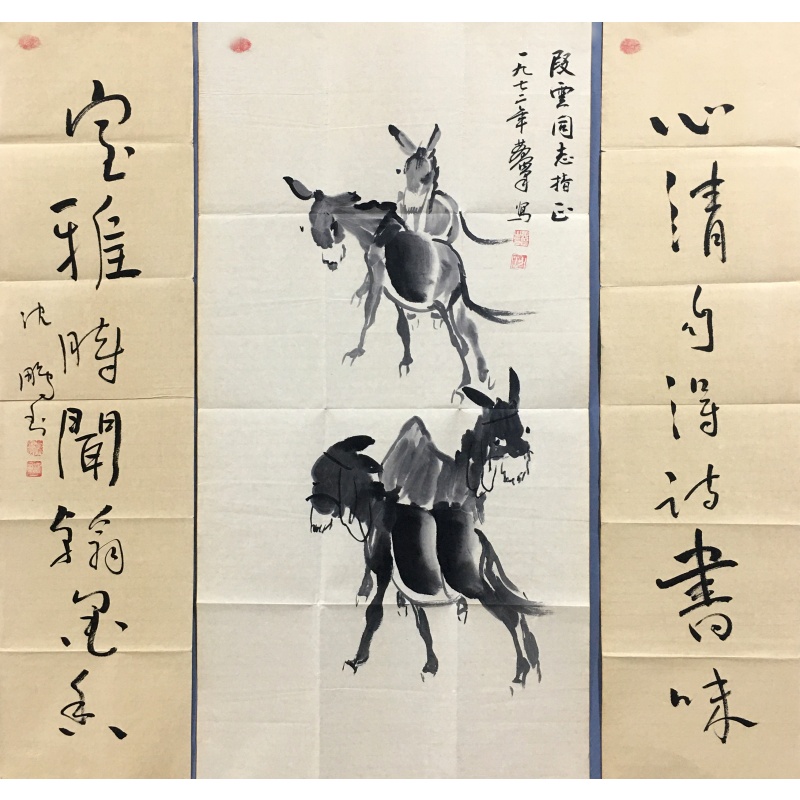 心清自得诗書味
段雲同志指正
一九七二年黄胄写
室雅時聞翰墨香
沈鹏書